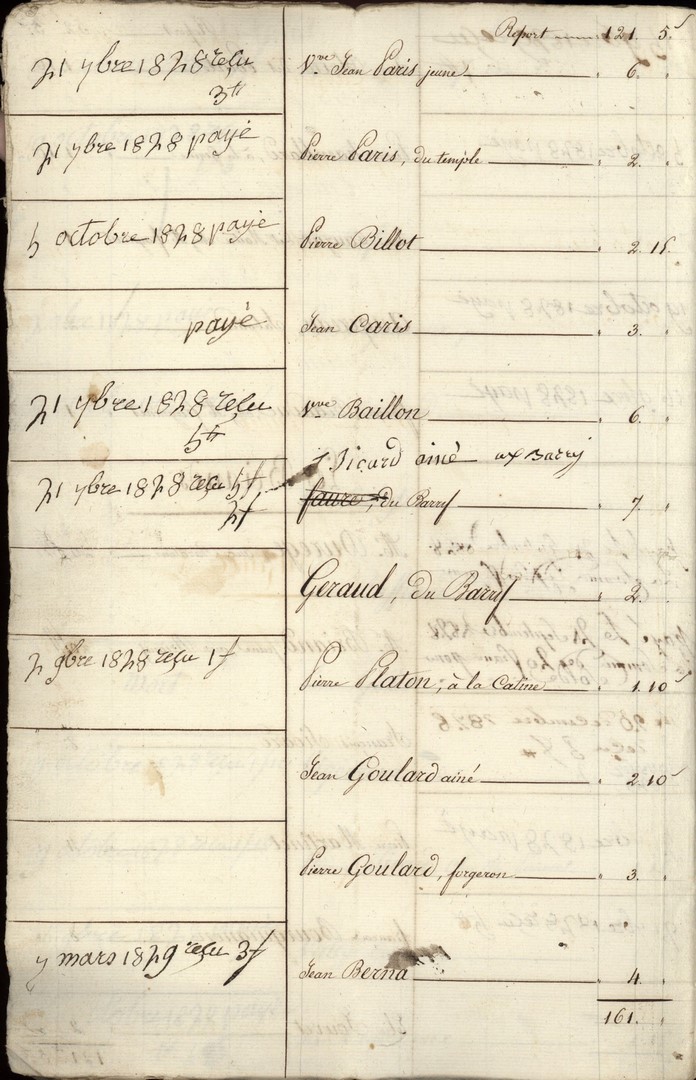 Report 121. 5.s
21 7bre 1828 reçu
Vve Jean Paris jeune 6.
3tt
21 7bre 1828 payé
Pierre Paris, du temple 2.
5 octobre 1828 payé
Pierre Billot 2 15.
payé
Jean Caris 3.
21 7bre 1828 reçu
Vve Baillon 6.
5tt
Picard ainé
21 7bre 1828 reçu 5f
faure, du Barry 7.
2f
Geraud, du Barry 2.
2 9bre 1828 reçu 1f
Pierre Platon, à la Catine 1. 10s
Jean Goulard ainé 2 10s
Pierre Goulard, forgeron 3.
7 mars 1829 reçu 3f
Jean Berna 4.
161.